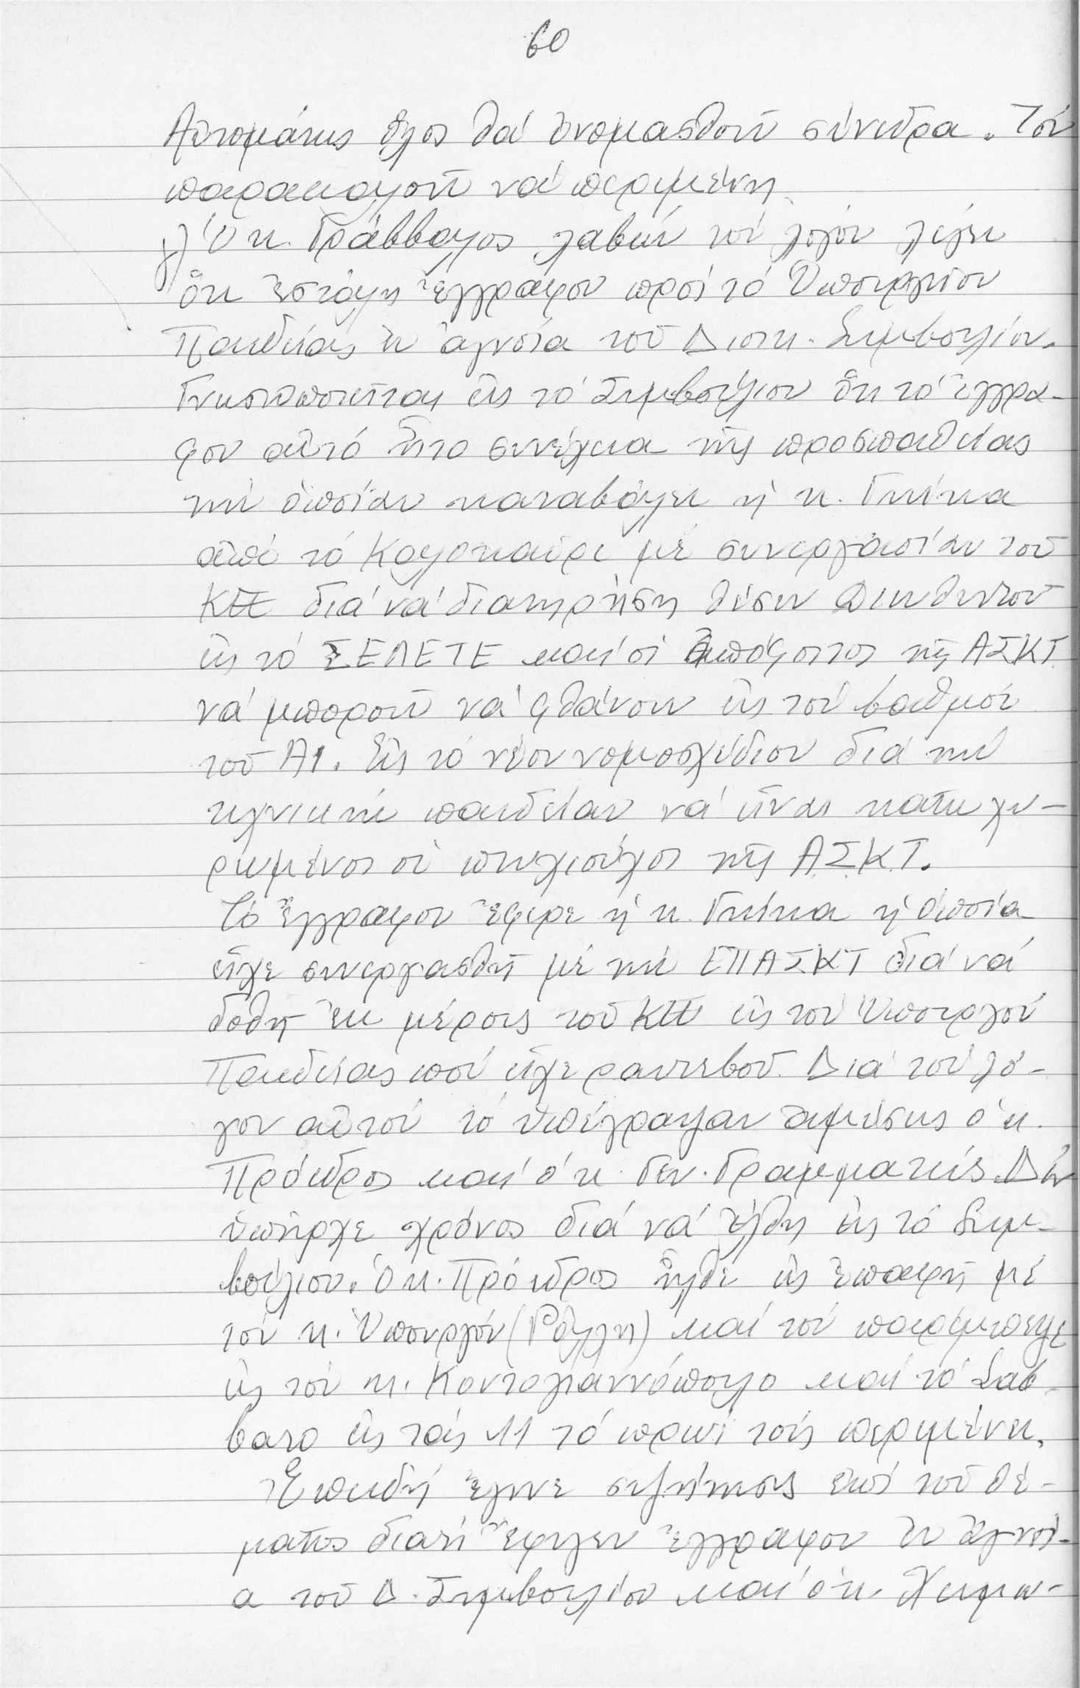 60
Αὐτομάτως ὅλοι θά ὀνομασθοῦν σύνεδροι. Τόν
παρακαλοῦν νά περιμένη.
γ) Ὁ κ. Γράββαλος λαβών τόν λόγον λέγει
ὅτι ἐστάλη ἔγγραφον πρός τό Ὑπουργεῖον
Παιδείας ἐν ἀγνοία τοῦ Διοικ. Συμβουλίου.
Γνωστοποιεῖται εἰς τό Συμβούλιον ὅτι τό ἔγγρα-
φον αὐτό ἦτο συνέχεια τῆς προσπαθείας
τήν ὁποίαν καταβάλει ἡ κ. Γκίκα
ἀπό τό Καλοκαῖρι μέ συνεργασίαν τοῦ
ΚΕΕ διά νά διατηρήση θέσιν Διευθυντοῦ
εἰς τό ΣΕΛΕΤΕ καί οἱ ἀπόφοιτοι τῆς ΑΣΚΤ
νά μποροῦν νά φθάνουν εἰς τόν βαθμόν
τοῦ Α1. Εἰς τό νέον νομοσχέδιον διά τήν
τεχνικήν παιδείαν νά εἶναι κατωχυ-
ρωμένοι οἱ πτυχιοῦχοι τῆς Α.Σ.Κ.Τ.
Τό ἔγγραφον ἔφερε ἡ κ. Γκίκα ἡ ὁποία
εἶχε συνεργασθῆ μέ τήν ΕΠΑΣΚΤ διά νά
δοθῆ ἐκ μέρους τοῦ ΚΕΕ εἰς τόν Ὑπουργόν
Παιδείας πού εἶχε ραντεβοῦ. Διά τόν λό-
γον αὐτόν τό ὑπέγραψαν ἀμέσως ὁ κ.
Πρόεδρος καί ὁ κ. Γεν. Γραμματεύς. Δέν
ὑπῆρχε χρόνος διά νά ἔλθη εἰς τό Συμ-
βούλιον. Ὁ κ. Πρόεδρος ἦλθε εἰς ἐπαφή μέ
τόν κ. Ὑπουργόν (Ράλλη) καί τόν παρέπεμψε
εἰς τόν κ. Κοντογιαννόπουλο καί τό Σαβ-
βατο εἰς τάς 11 τό πρωί τούς περιμένει.
Ἐπειδή ἔγινε συζήτησις ἐπί τοῦ θέ-
ματος διατί ἔφυγεν ἔγγραφον ἐν ἀγνοί-
α τοῦ Δ. Συμβουλίου καί ὁ κ. Χειμω-